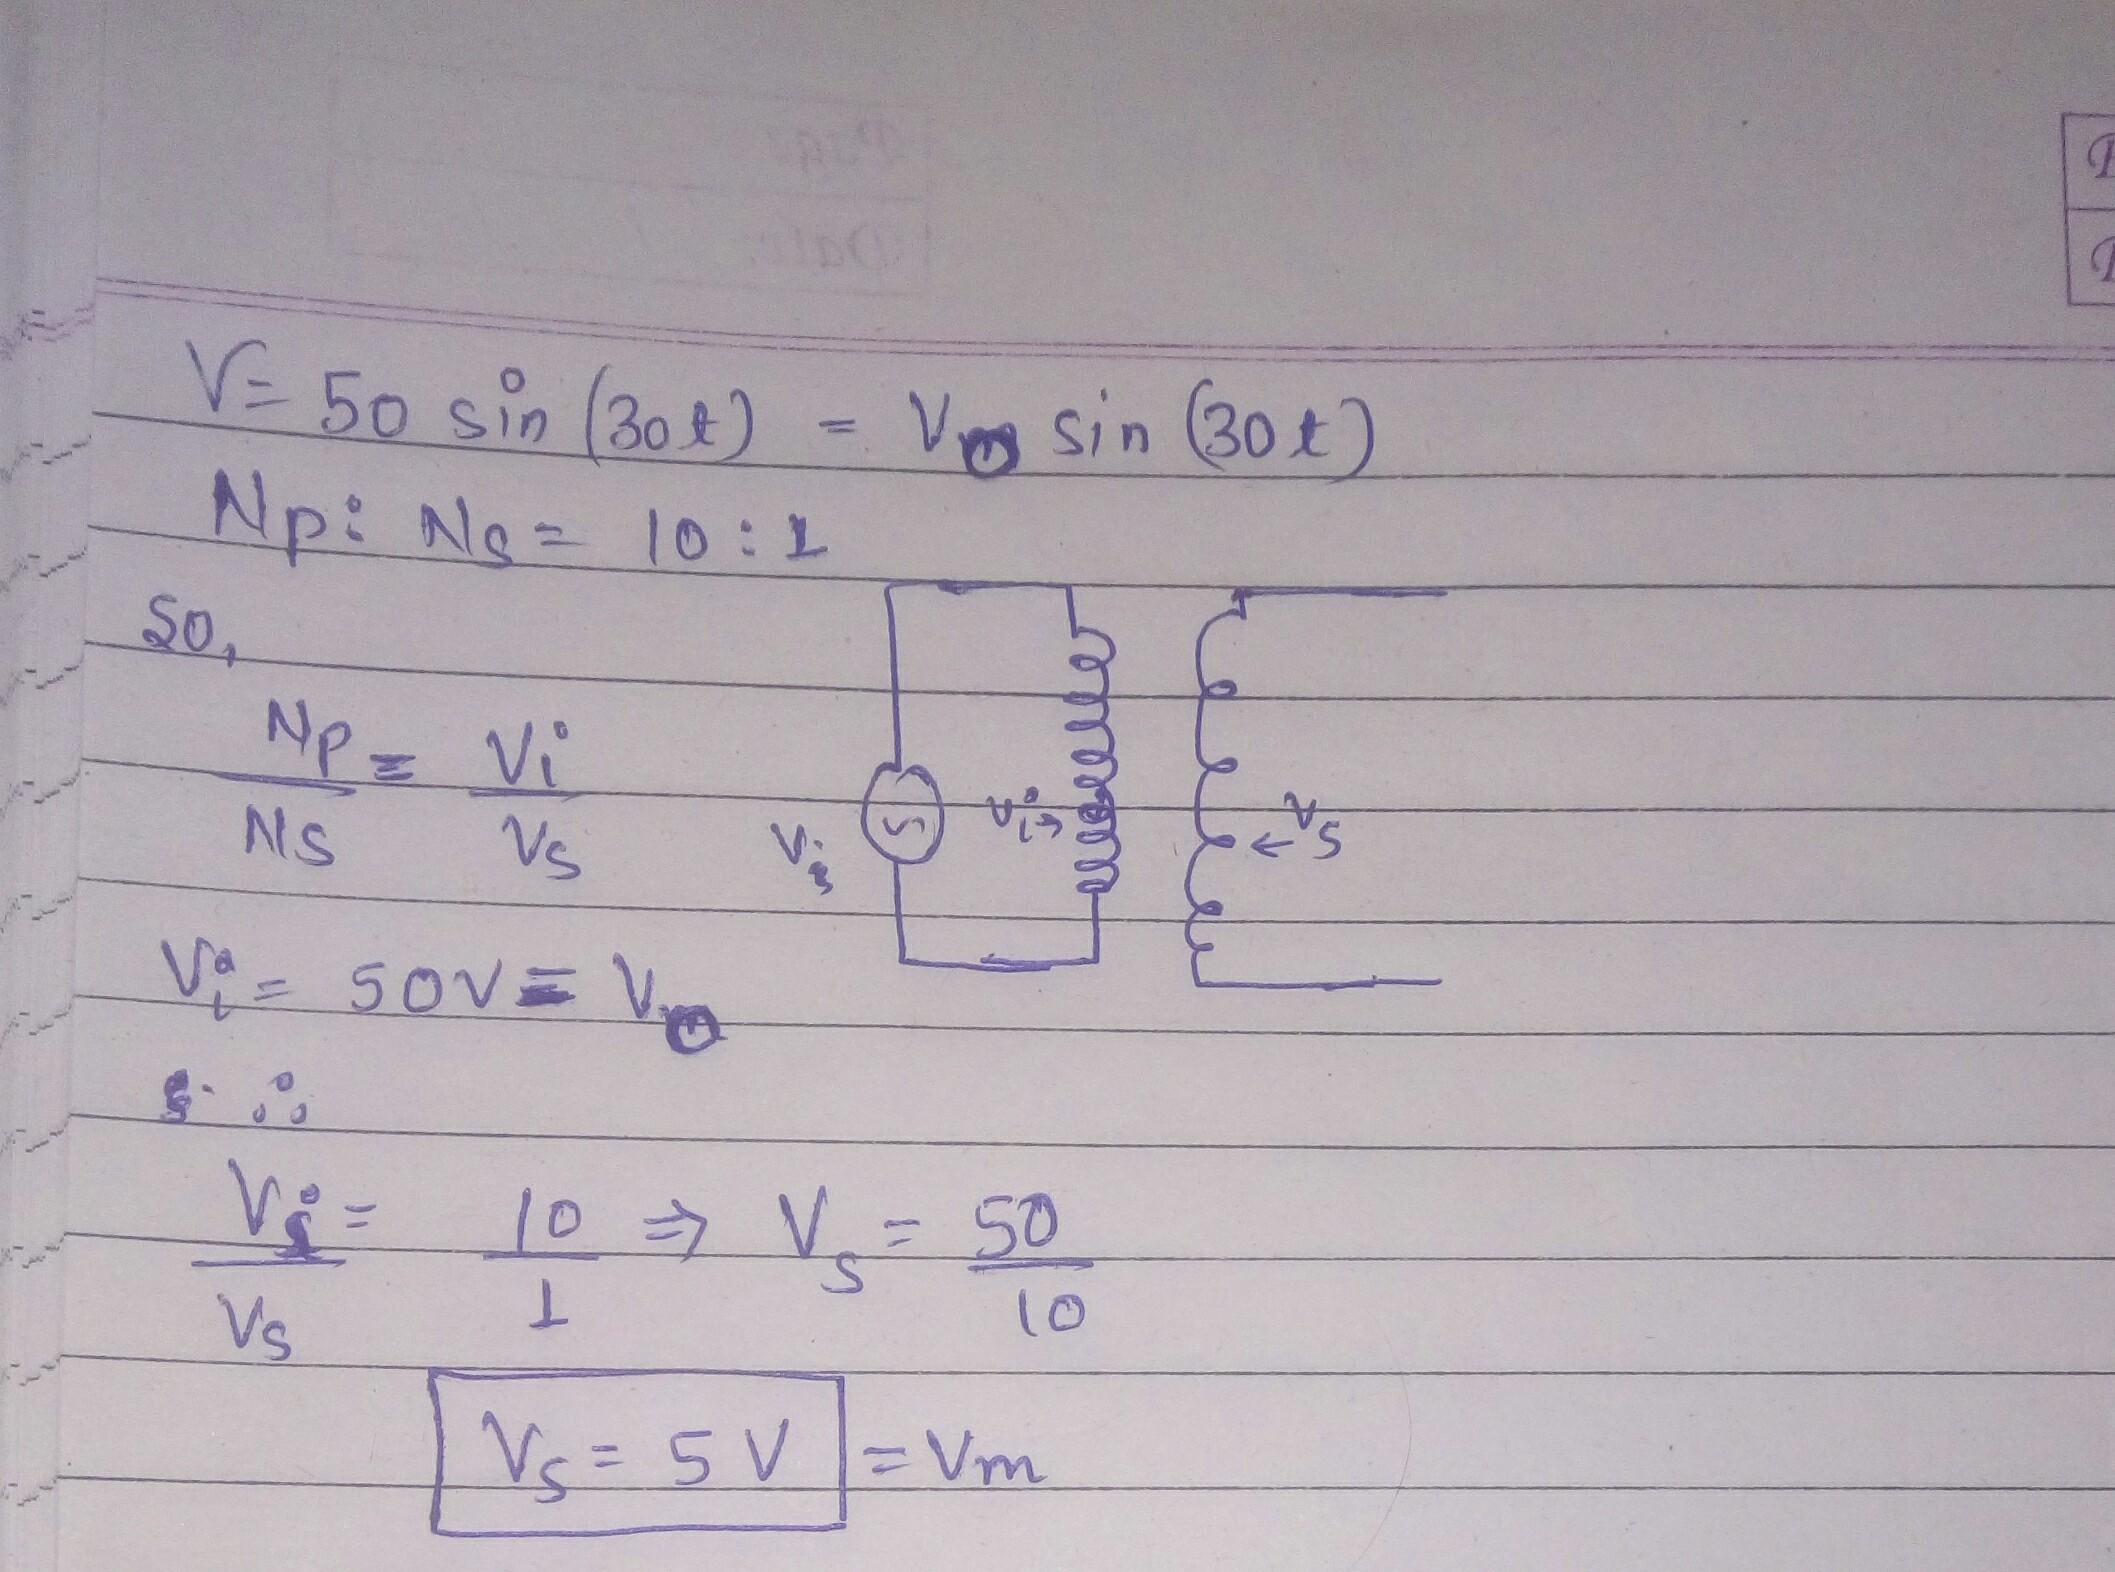 V = 50 sin (30t) = Vm sin (30t)
Np : Ns = 10 : 1
So,
Np = Vi
Ns Vs
Vi
Vi →
← Vs
Vi = 50V = Vm
∴
Vi = 10 ⇒ Vs = 50
Vs 1 10
Vs = 5 V = Vm